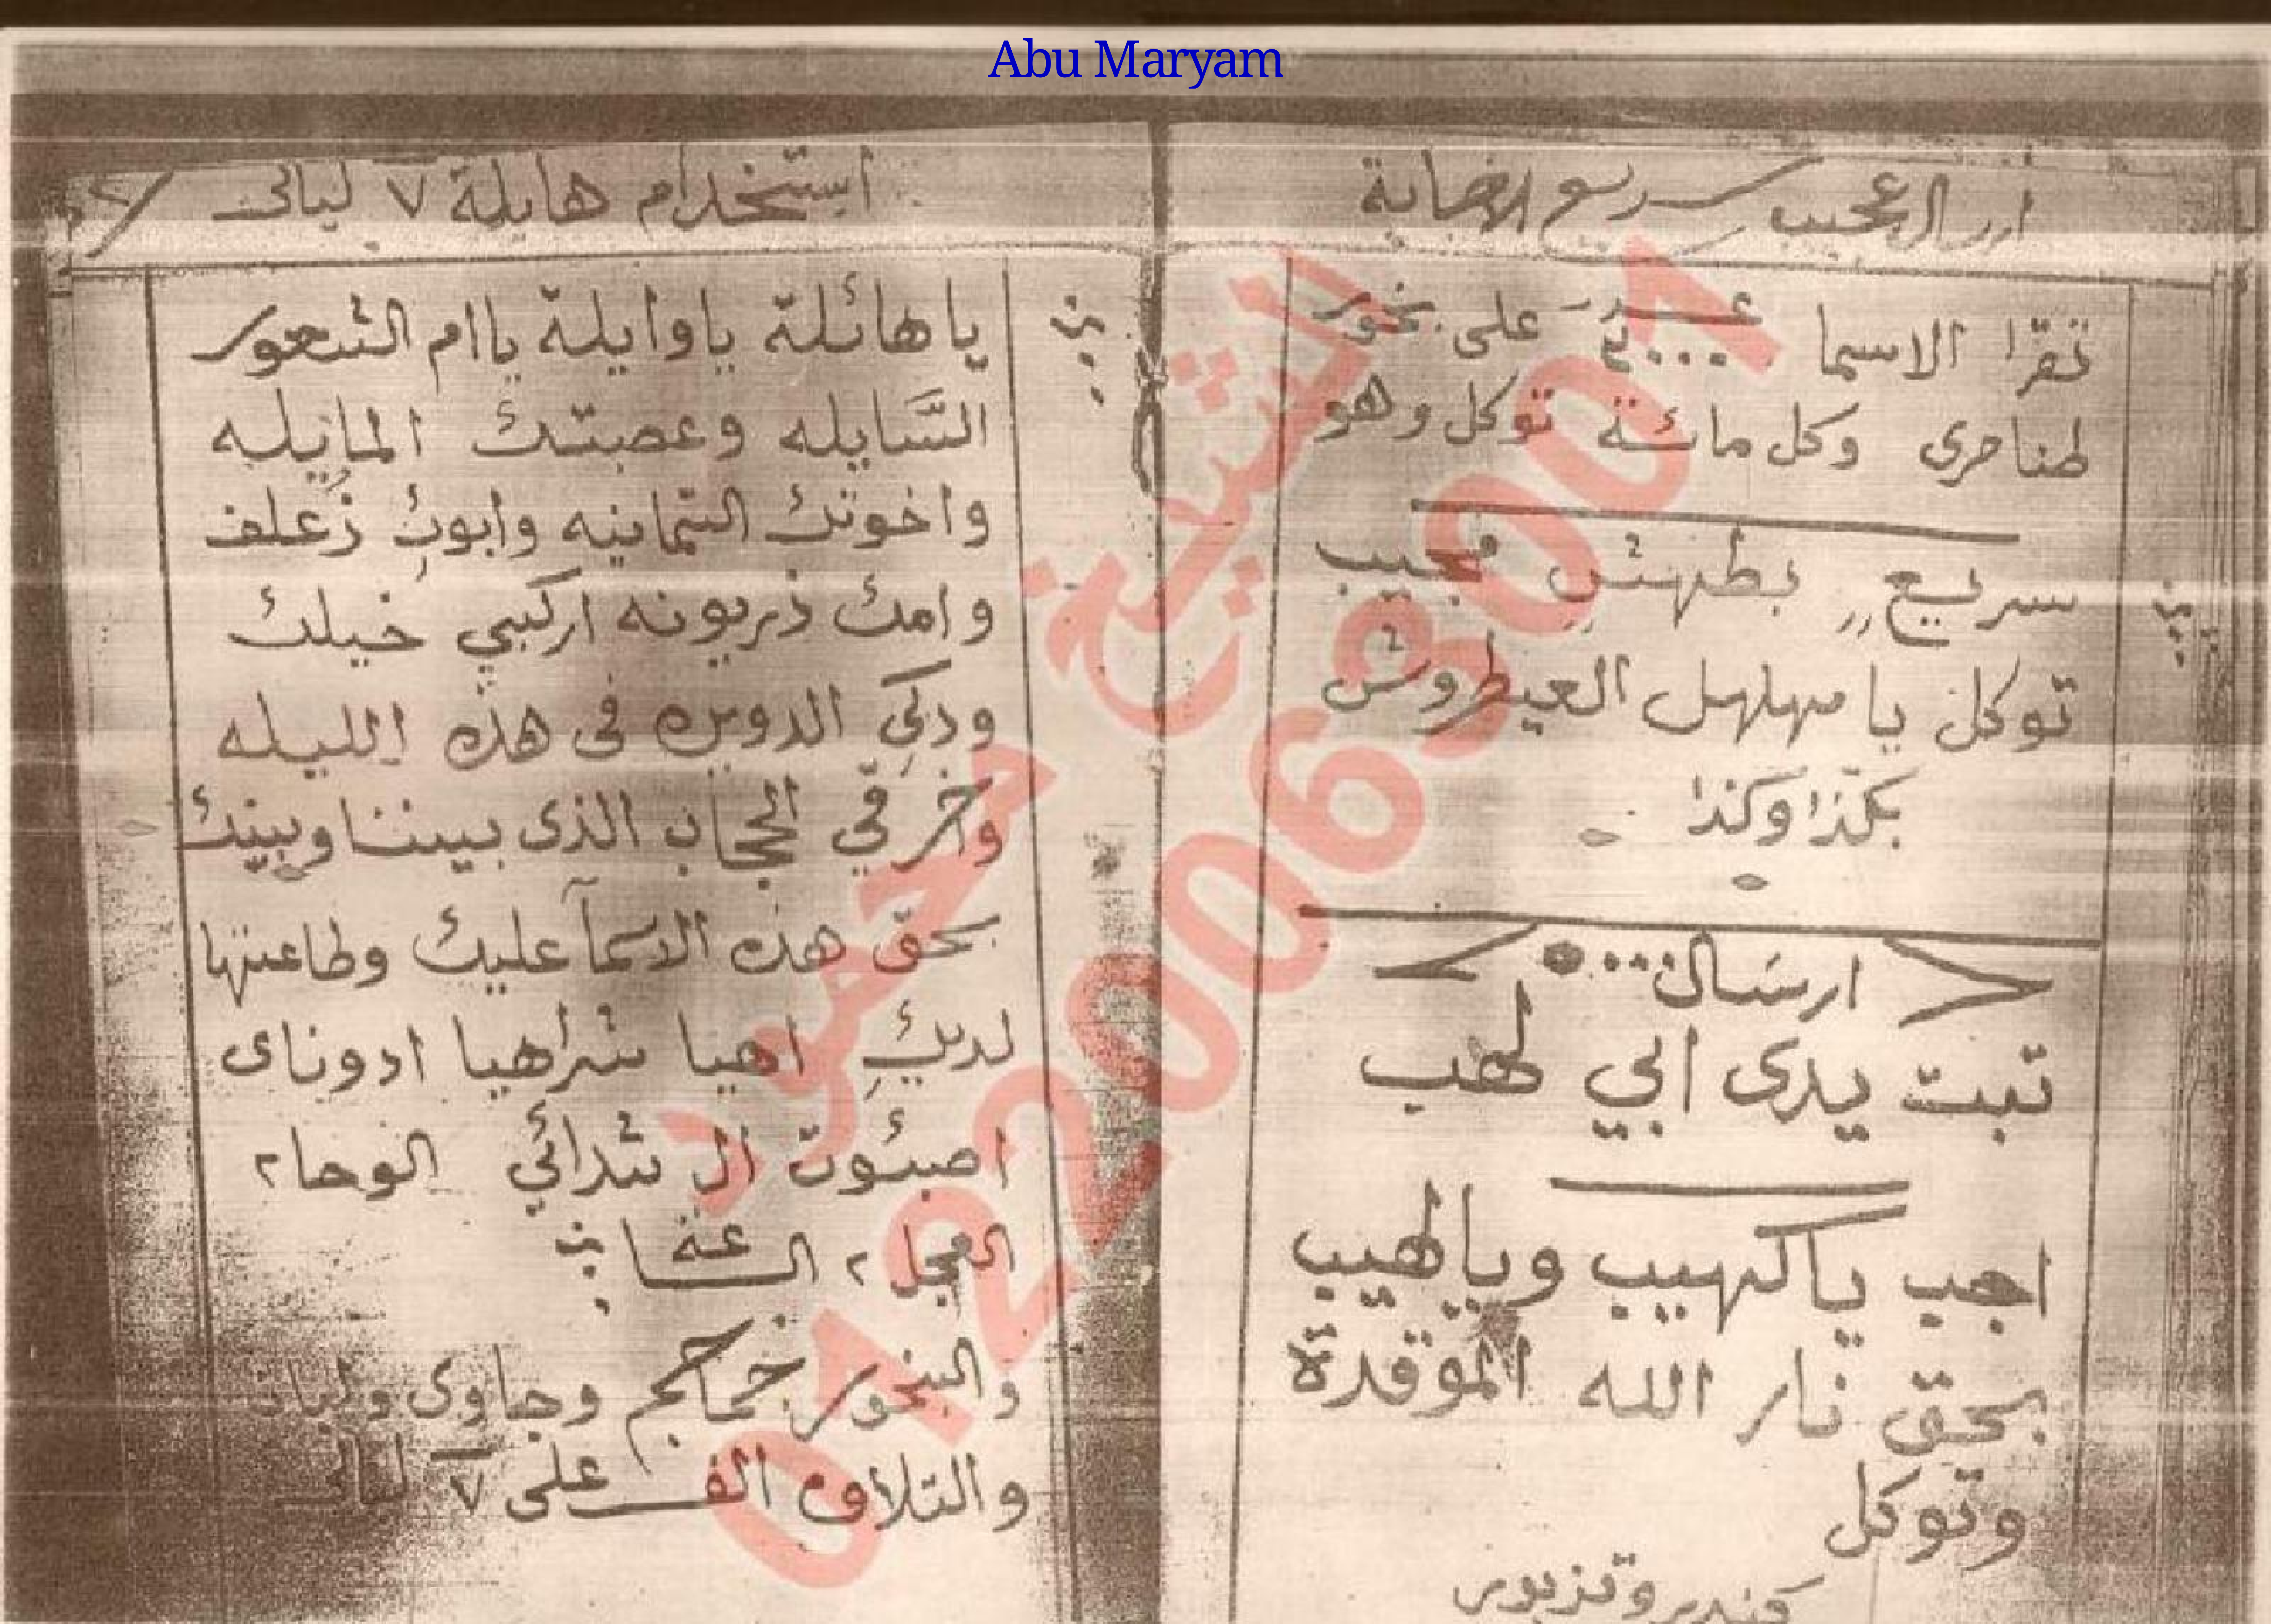 Abu Maryam
ارسال عجيب سريع الاجابة
تقرا الاسما عـدد ٣٠٠٠ على بخور
طناصرى وكل مائة توكل وهو
سريع بطهش مجيب
توكل يا مهلهل العيطروش
بكذا وكذا
ارسال
تبت يدى ابي لهب
اجب يا كهيب ويا لهيب
بحق نار الله الموقدة
وتوكل
استخدام هايلة ٧ ليالى
يا هائلة يا وايلة يا ام الشعور
السَّايله وعصبتك المايله
واخوتك الثمانيه وابوك زعلف
وامك ذريونه اركبي خيلك
ودكي الدويره فى هذه الليله
وخرقي الحجاب الذى بيننا وبينك
بحق هذه الاسمآ عليك وطاعتها
لديكِ اهيا شراهيا ادوناى
اصبئوت ال شدائي الوحا٢
العجل ٢ الساعة
والبخور جماجم وجاوى ولبان
والتلاوه الف على ٧ ليالى
الشيخ محمود
01220063001